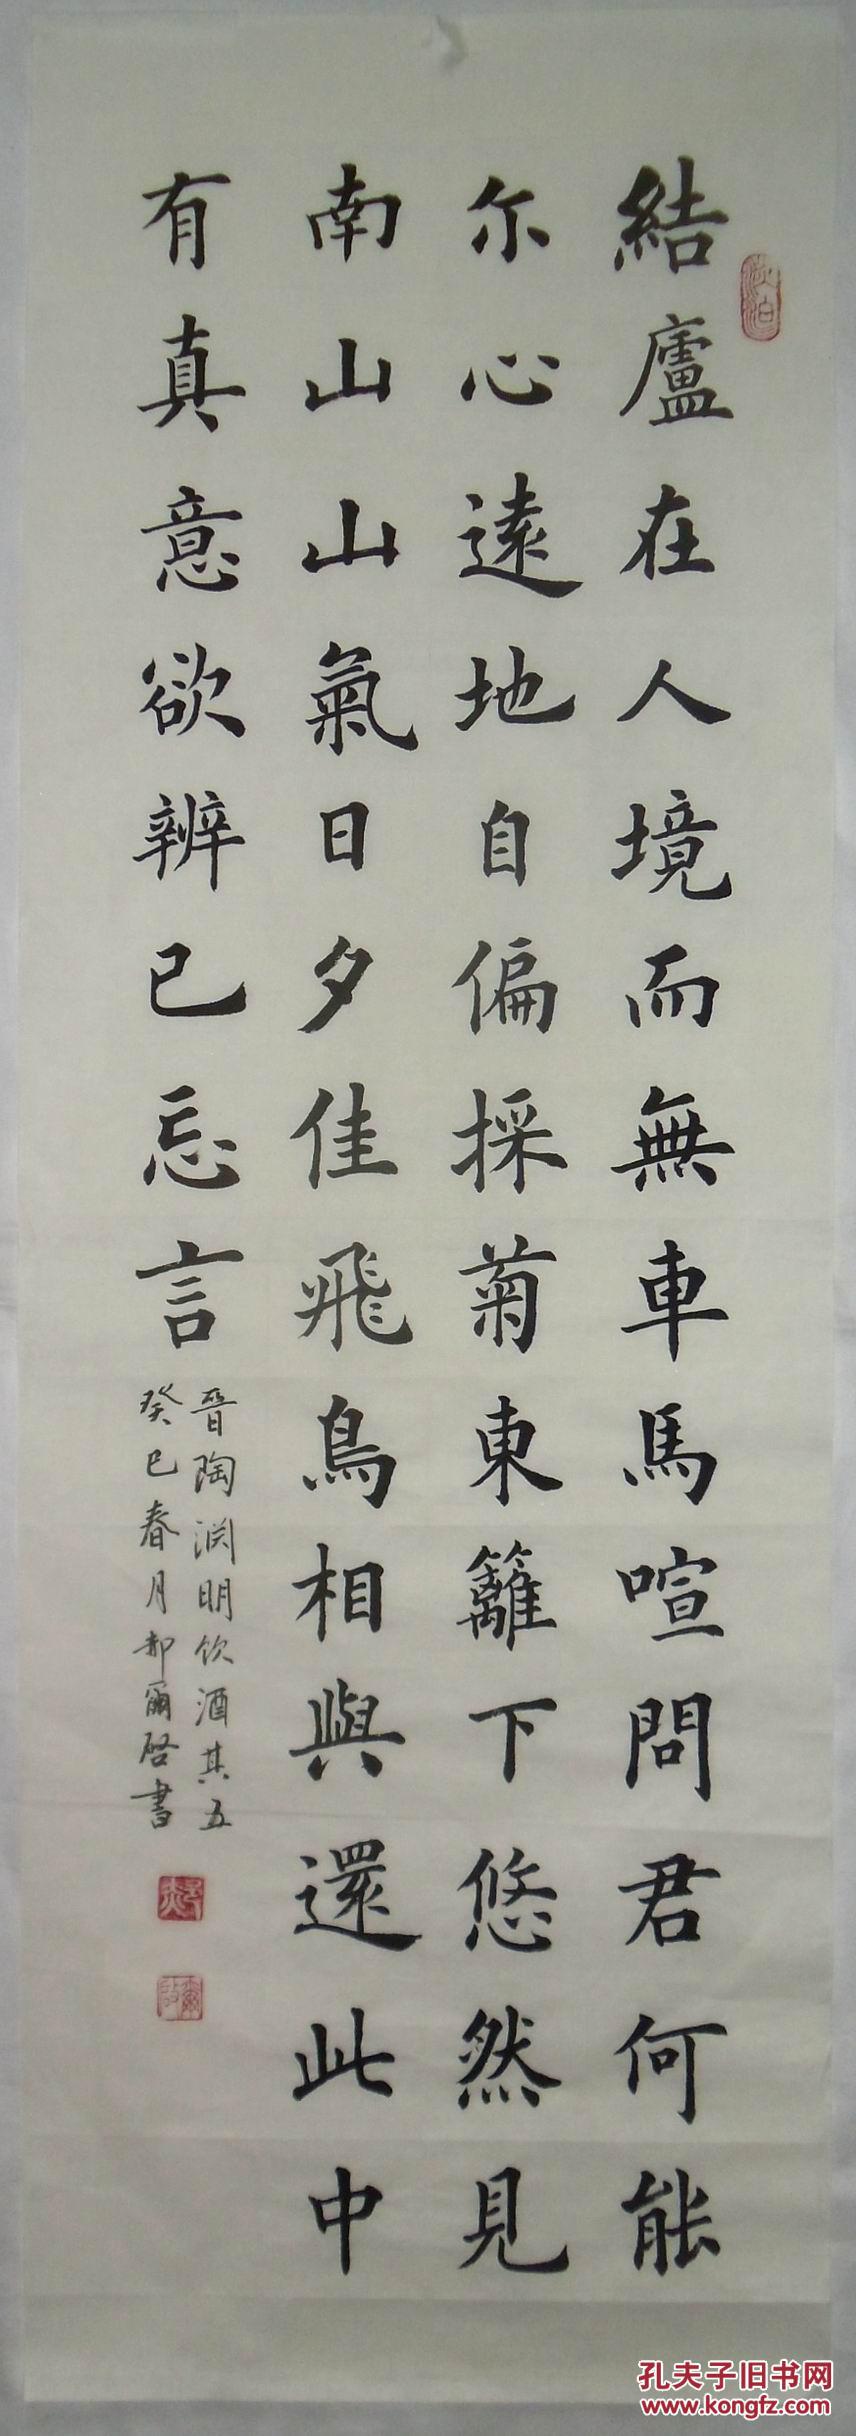 結廬在人境而無車馬喧問君何能
尔心遠地自偏採菊東籬下悠然見
南山山氣日夕佳飛鳥相與還此中
有真意欲辨已忘言
晉陶渊明饮酒其五
癸巳春月郝爾啓書
淡泊
孔夫子旧书网
www.kongfz.com